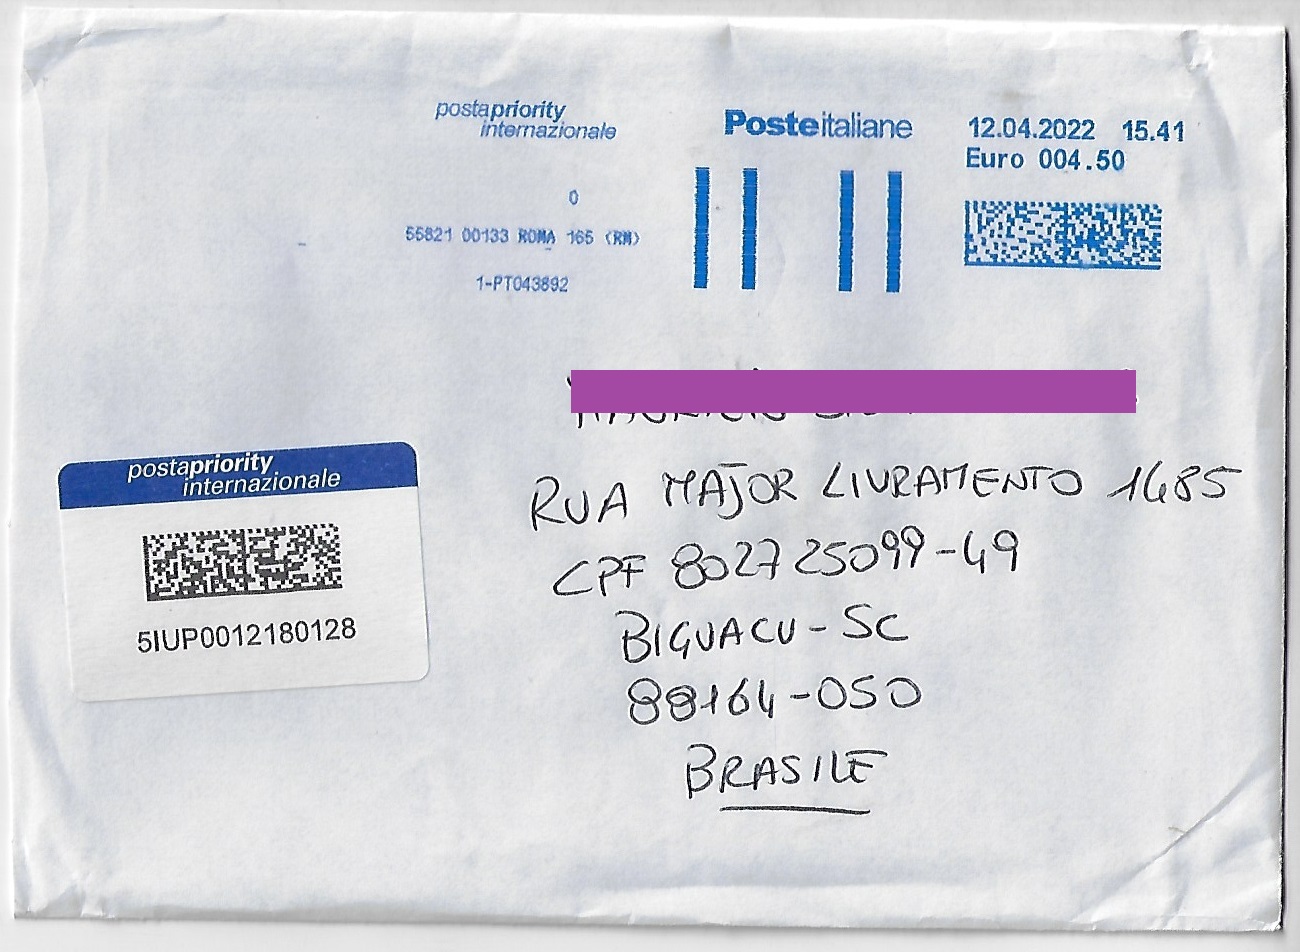 postapriority
internazionale
Posteitaliane
12.04.2022 15.41
Euro 004.50
0
55821 00133 ROMA 165 (RM)
1-PT043892
RUA MAJOR LIVRAMENTO 1485
CPF 802725099-49
BIGUACU-SC
88164-050
BRASILE
postapriority
internazionale
5IUP0012180128